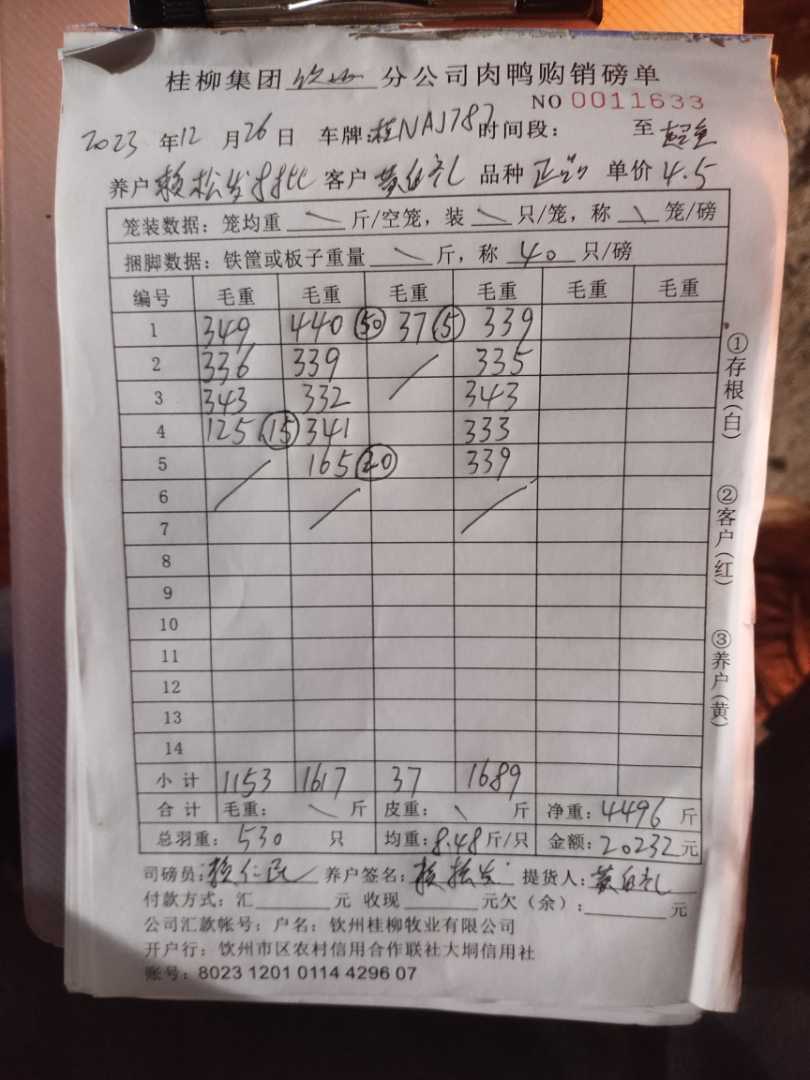 桂柳集团 钦州 分公司肉鸭购销磅单
NO 0011633
2023 年 12 月 26 日 车牌:桂NAJ787 时间段: 至
养户 赖松发 客户 黄 品种 正 单价 4.5
笼装数据: 笼均重 \ 斤/空笼, 装 \ 只/笼, 称 \ 笼/磅
捆脚数据: 铁筐或板子重量 \ 斤, 称 40 只/磅
编号 毛重 毛重 毛重 毛重 毛重 毛重
1 349 440 (50) 37 (5) 339
2 336 339 / 335
3 343 332 343
4 125 (15) 341 333
5 / 165 (20) 339
6 / /
7
8
9
10
11
12
13
14
小计 1153 1617 37 1689
合计 毛重: \ 斤 皮重: \ 斤 净重: 4496 斤
总羽重: 530 只 均重: 8.48 斤/只 金额: 20232 元
司磅员: 赖仁 养户签名: 赖松发 提货人: 黄
付款方式: 汇 元 收现 元欠(余): 元
公司汇款帐号: 户名: 钦州桂柳牧业有限公司
开户行: 钦州市区农村信用合作联社大垌信用社
账号: 8023 1201 0114 4296 07
①存根(白)
②客户(红)
③养户(黄)